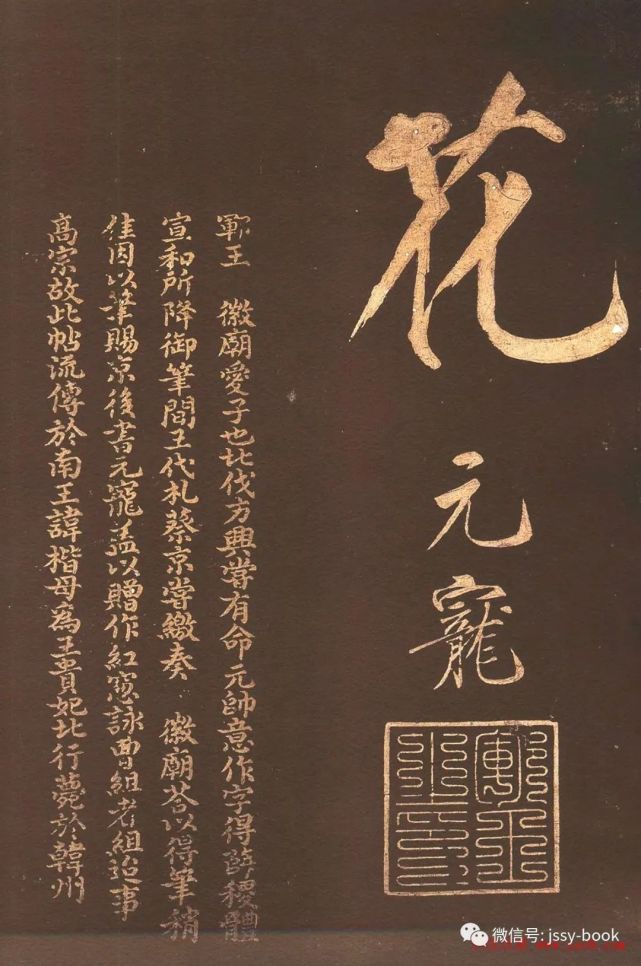 花
元寵
鄆王 徽廟愛子也北伐方興嘗有命元帥意作字得薛稷體
宣和所降御筆間王代札蔡京嘗繳奏 徽廟荅以得筆稍
佳因以筆賜京後書元寵盖以贈作紅窓詠曹組者組迨事
高宗故此帖流傳於南王諱楷母為王貴妃北行薨於韓州
微信号: jssy-book